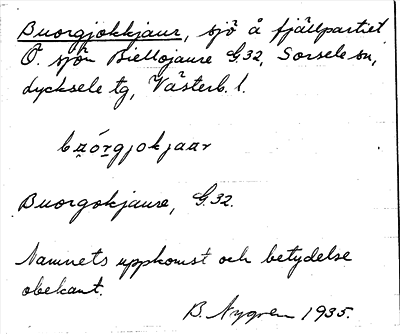 Buorgjokkjaur, sjö å fjällpartiet
Ö. sjön Biellojaure G.32, Sorsele sn,
Lycksele tg, Västerb. l.
bu̯órgjokjaar
Buorgokjaure, G.32.
Namnets uppkomst och betydelse
obekant.
B. Nygren 1935.